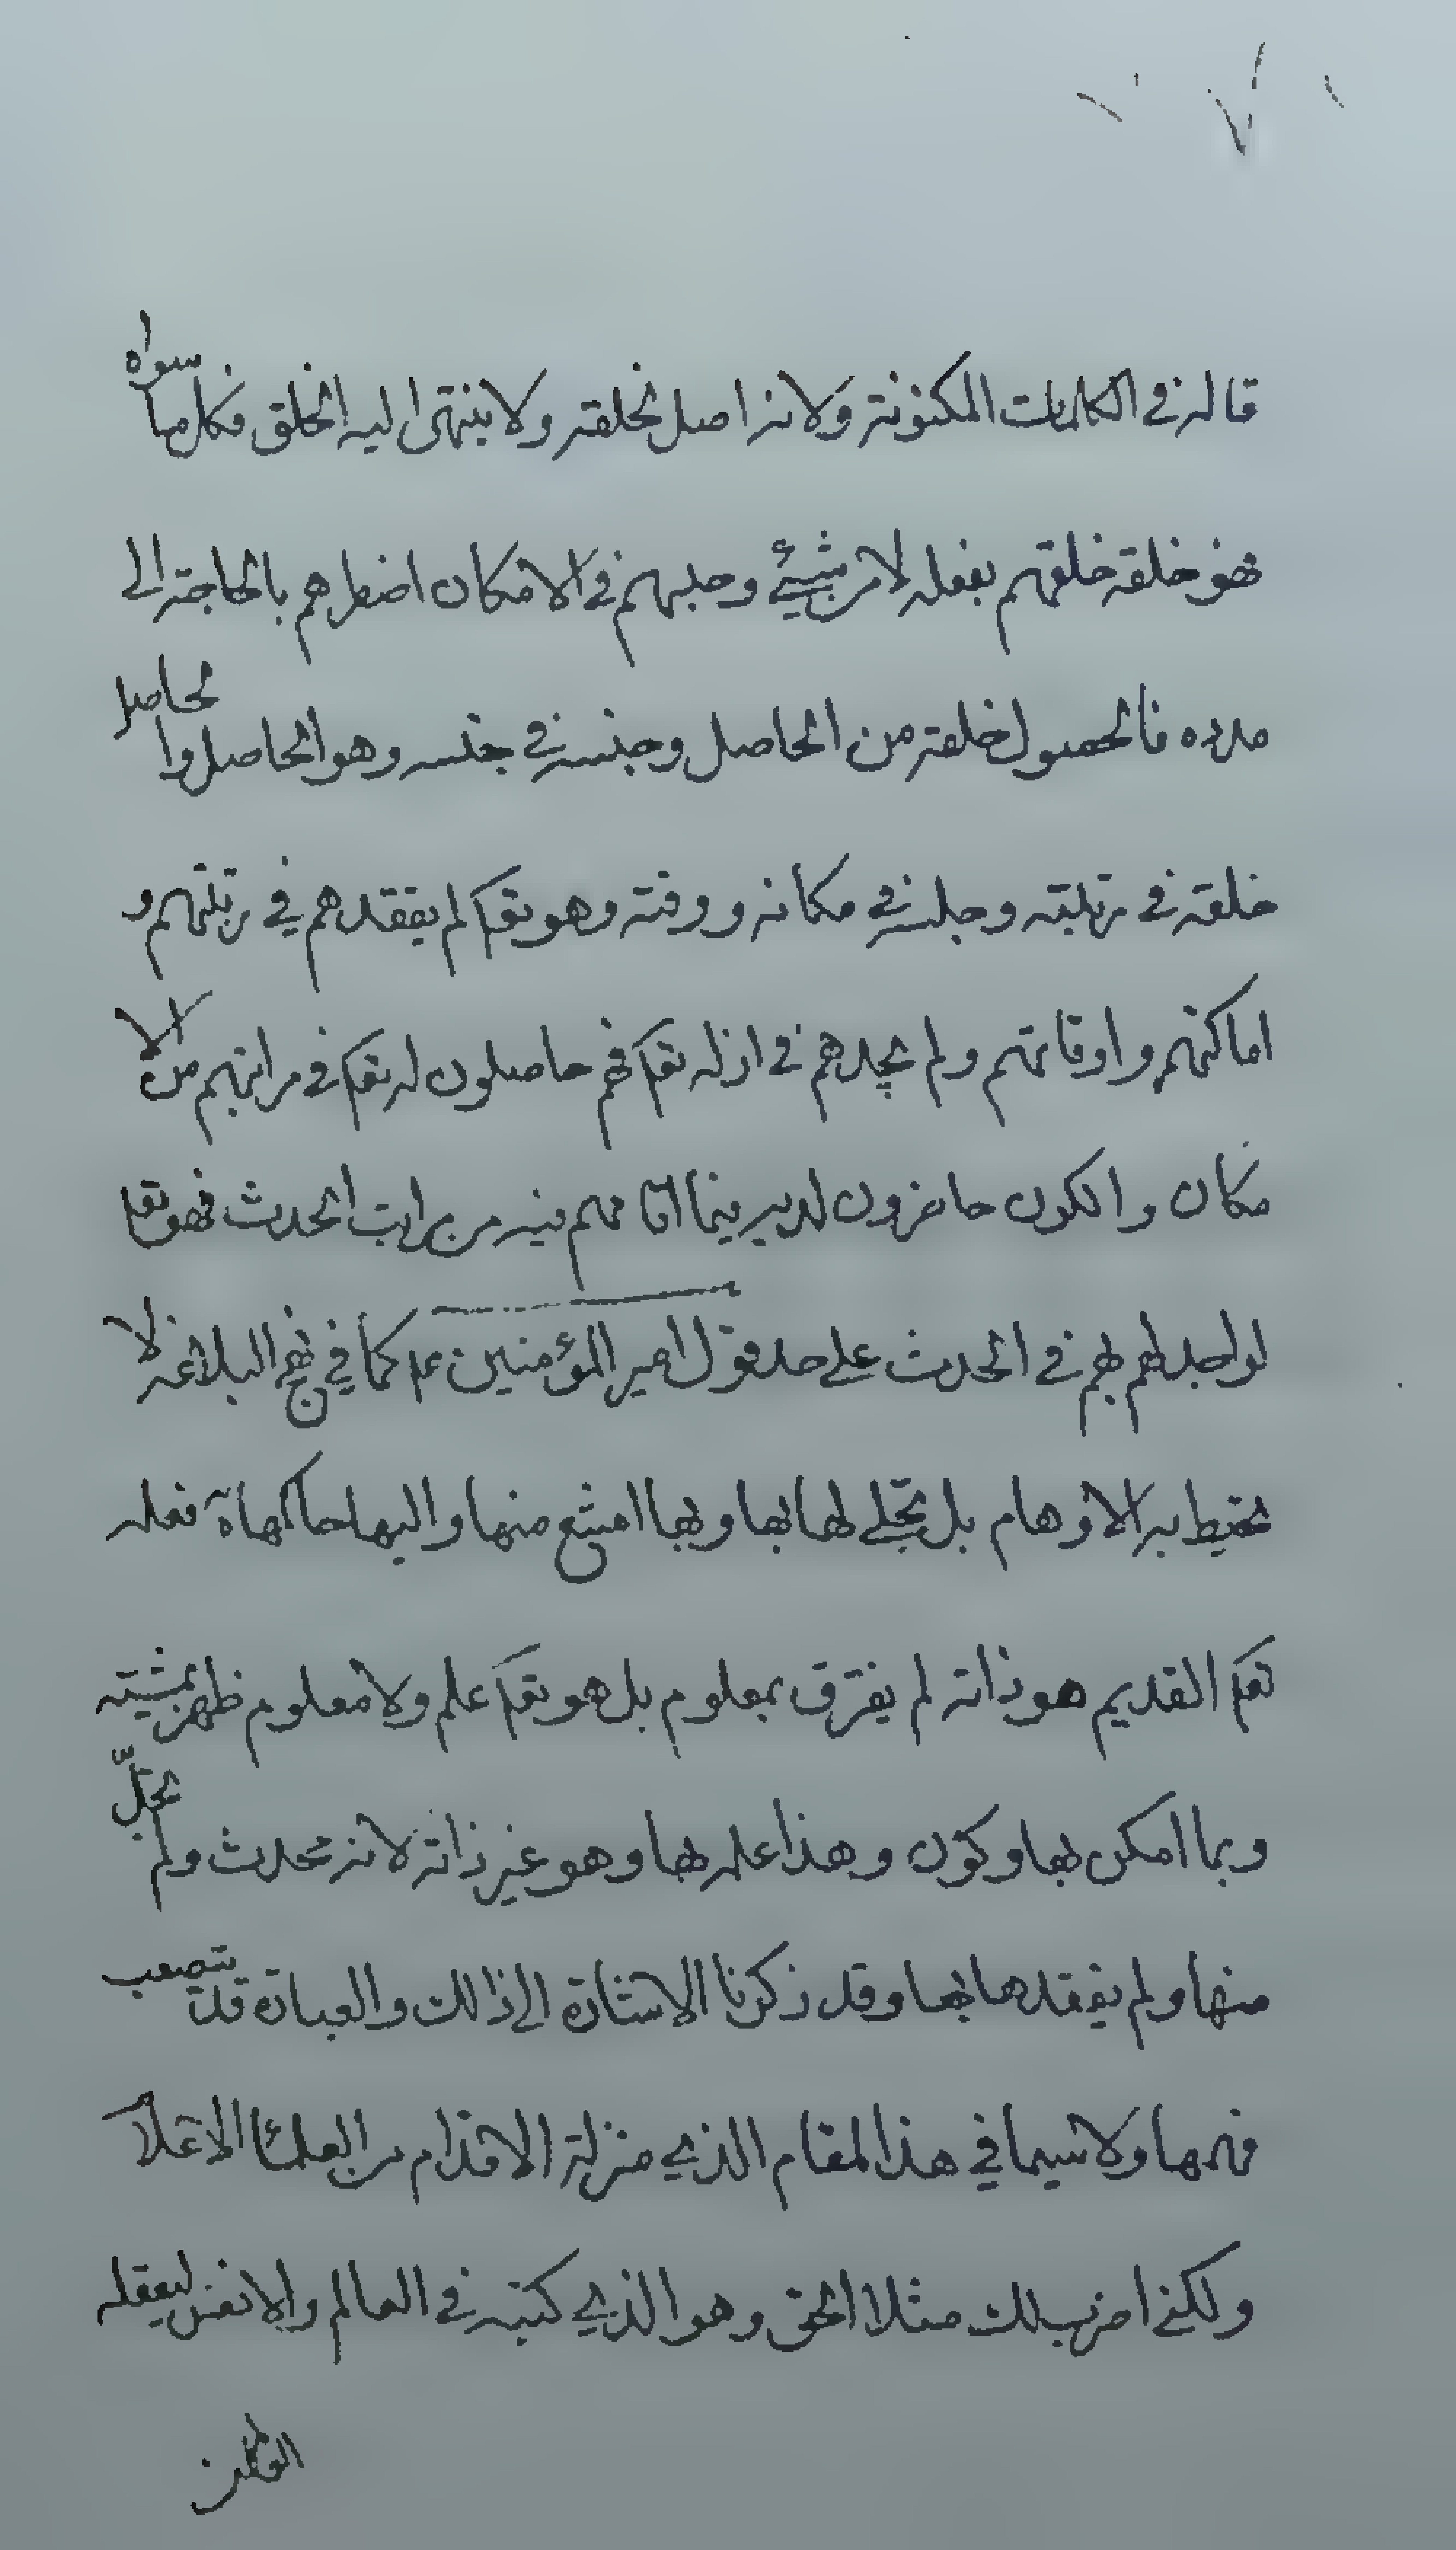 قاله في الكلمات المكنونة ولانه اصل لخلقه ولا ينتهى اليه الخلق فكل ما سواه
فهو خلقه خلقهم بفعله لا من شيئ وحبسهم في الامكان اضطرهم بالحاجة الى
مدده فالحصول لخلقه من الحاصل وجنسه في جنسه وهو الحاصل وا لحاصل
خلقه في رتبته وجلسه في مكانه ووقته وهو تعا لم يفقدهم في رتبتهم و
اماكنهم واوقاتهم ولم يجدهم في ازله تعا فهم حاصلون له تعا في مراتبهم من الا
مكان والكون حاضرون لديه فيما اقامهم فيه من مراتب الحدث فهو تعا
لواجد لهم بهم في الحدث على حد قول امير المؤمنين ع كما في نهج البلاغه لا
تحيط به الاوهام بل تجلى لها بها وبها امتنع منها واليها حاكمها فعلمه
تعا القديم هو ذاته لم يفترق بمعلوم بل هو تعا علم ولا معلوم ظهر بمشيته
وبما امكن بها وكون وهذا علمه بها وهو غير ذاته لانه محدث ولم يخل
منها ولم يفقدها بها وقد ذكرنا الاشارة الى ذلك والعبارة قد تصعب
فهمها ولا سيما في هذا المقام الذي منزلة الاقدام من العلماء الاعلام
ولكني اضرب لك مثلا الحق وهو الذي كتبه في العالم والانفس ليعقله